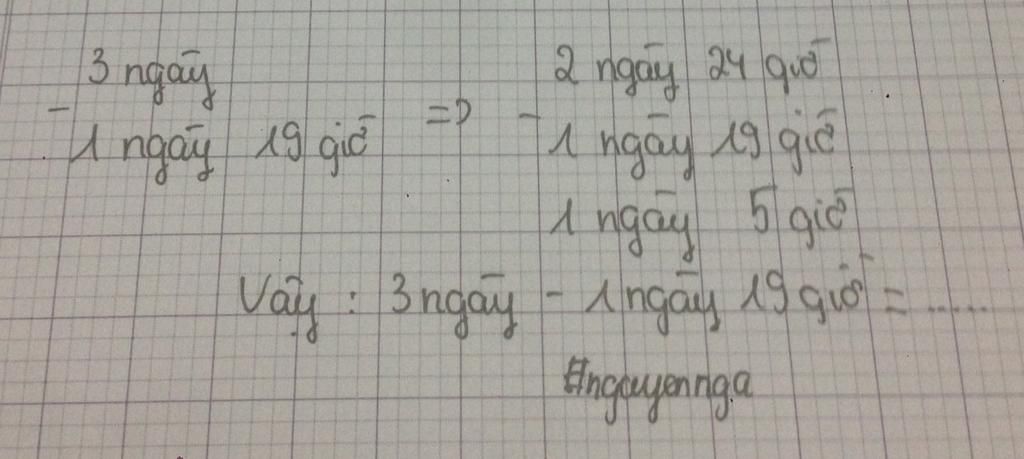 3 ngày 2 ngày 24 giờ
- 1 ngày 19 giờ => - 1 ngày 19 giờ
1 ngày 5 giờ
Vậy : 3 ngày - 1 ngày 19 giờ = ......
#nguyennga